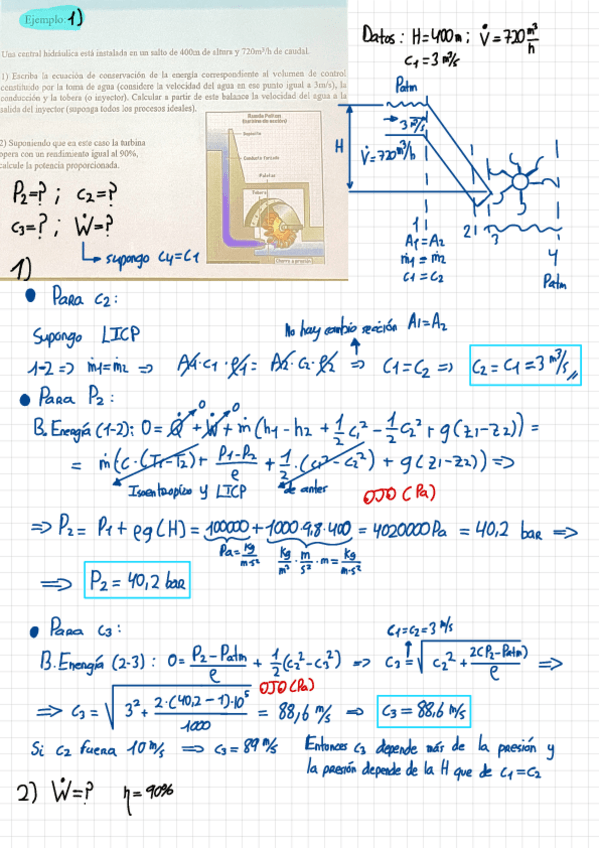 Ejemplo 1)
Una central hidráulica está instalada en un salto de 400m de altura y 720m³/h de caudal.
1) Escriba la ecuación de conservación de la energía correspondiente al volumen de control
constituido por la toma de agua (considere la velocidad del agua en ese punto igual a 3m/s), la
conducción y la tobera (o inyector). Calcular a partir de este balance la velocidad del agua a la
salida del inyector (suponga todos los procesos ideales).
2) Suponiendo que en este caso la turbina
opera con un rendimiento igual al 90%,
calcule la potencia proporcionada.
Rueda Pelton
(turbina de acción)
Depósito
Conducto forzado
Paletas
Tobera
Chorro a presión
Datos: H=400m ; V̇=720 m³/h
c₁=3 m³/s
Patm
3 m³/s
H
V̇=720 m³/h
1
A₁=A₂
ṁ₁=ṁ₂
c₁=c₂
2
3
4
Patm
P₂=? ; c₂=?
c₃=? ; Ẇ=?
↳ supongo c₄=c₁
1)
• Para c₂:
Supongo LICP
No hay cambio sección A₁=A₂
1-2 => ṁ₁=ṁ₂ => A₁·c₁·ρ₁ = A₂·c₂·ρ₂ => c₁=c₂ => c₂=c₁=3 m³/s
• Para P₂:
B. Energía (1-2): 0 = Q̇ + Ẇ + ṁ(h₁-h₂+½c₁²-½c₂²+g(z₁-z₂)) =
0 0
= ṁ(c·(T₁-T₂) + (P₁-P₂)/ρ + ½·(c₁²-c₂²) + g(z₁-z₂)) =>
Isoentrópico y LICP
de antes
OJO (Pa)
=> P₂ = P₁+ρg(H) = 100000+1000·9,8·400 = 4020000Pa = 40,2 bar =>
Pa=kg/m·s² kg/m³·m/s²·m=kg/m·s²
=> P₂=40,2 bar
• Para c₃:
c₁=c₂=3 m/s
B. Energía (2-3): 0=(P₂-Patm)/ρ + ½(c₂²-c₃²) => c₃=√(c₂²+2(P₂-Patm)/ρ) =>
OJO (Pa)
=> c₃=√(3²+2·(40,2-1)·10⁵/1000) = 88,6 m/s => c₃=88,6 m/s
Si c₂ fuera 10 m/s => c₃=89 m/s
Entonces c₃ depende más de la presión y
la presión depende de la H que de c₁=c₂
2) Ẇ=? η=90%